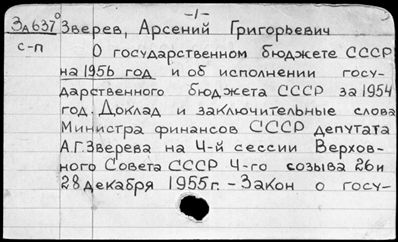 -1-
3д637° Зверев, Арсений Григорьевич
с-п О государственном бюджете СССР
на 1956 год и об исполнении госу-
дарственного бюджета СССР за 1954
год. Доклад и заключительные слова
Министра финансов СССР депутата
А.Г.Зверева на 4-й сессии Верхов-
ного Совета СССР 4-го созыва 26 и
28 декабря 1955г. - Закон о госу-